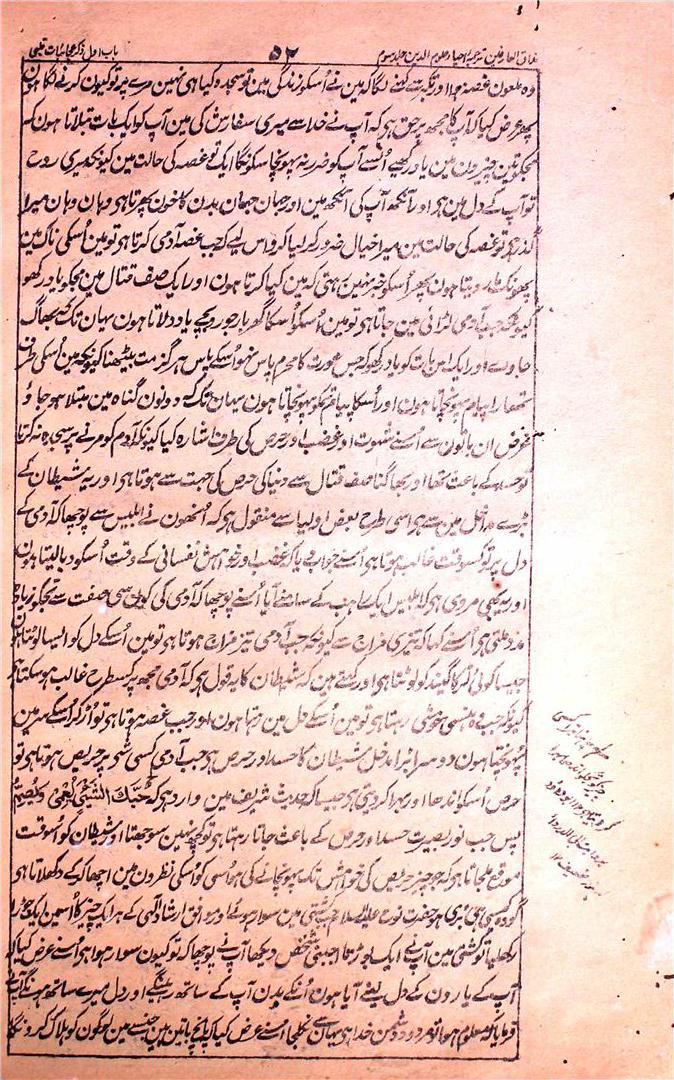 مذاق العارفین ترجمہ احیاء علوم الدین جلد سوم
۵۲
باب اول ذکر عجائبات قلبی
وہ ملعون غصہ ہوا اور تکبر سے کہنے لگا کہ مین نے اُسکو زندگی مین تو سجدہ کیا ہی نہین مرے پر تو کیون کرنے لگا ہون
پھر عرض کیا کہ آپ کا مجھ پر حق ہو کہ آپ نے خدا سے میری سفارش کی مین آپ کو ایک بات بتلاتا ہون کہ
مجکو تین چیزون مین یاد رکھیے اُنسے آپ کو ضرر نہ پہونچا سکونگا ایک تو غصہ کی حالت مین کیونکہ میری روح
تو آپ کے دل مین ہو اور آنکھ آپ کی آنکھ مین اور جہان جہان بدن کا خون پھرتا ہی وہان وہان میرا
گذر ہو تو غصہ کی حالت مین میرا خیال ضرور کر لیا کرو اس لیے کہ جب غصہ آدمی کرتا ہو تو مین اُسکی ناک مین
پھونک مار دیتا ہون پھر اُسکو خبر نہین رہتی کہ مین کیا کرتا ہون اور ایک صف قتال مین مجکو یاد رکھو
کیونکہ جب آدمی لڑائی مین جاتا ہی تو مین اُسکو اُسکا گھر بار جورو بچے یاد دلاتا ہون یہان تک کہ بھاگ
جاوے اور ایک اس بات کو یاد رکھو کہ جس عورت کا محرم پاس نہو اُسکے پاس ہر گز مت بیٹھنا کیونکہ مین اُسکی طرف
تمھارا پیام پہونچاتا ہون اور اُسکا پیام تمکو پہونچاتا ہون یہان تک کہ دونون گناہ مین مبتلا ہو جاؤ
غرض ان باتون سے اُسنے شہوت اور غضب اور حرص کی طرف اشارہ کیا کیونکہ آدم کو مرنے پر سجدہ نہ کرنا
تو حسد کے باعث تھا اور بھاگنا صف قتال سے دنیا کی حرص کی جہت سے ہوتا ہی اور یہ شیطان کے
بڑے مداخل مین سے ہو اسی طرح بعض اولیا سے منقول ہو کہ اُنھون نے ابلیس سے پوچھا کہ آدمی کے
دل پر تو کسوقت غالب ہوتا ہی اُسنے جواب دیا کہ غضب اور خواہش نفسانی کے وقت اُسکو دبا لیتا ہون
اور یہ بھی مروی ہی کہ ابلیس ایک راہب کے سامنے آیا اُسنے پوچھا کہ آدمی کی کونسی صفت سے تجکو زیادہ
مدد ملتی ہی اُسنے کہا کہ تیزی مزاج سے کیونکہ جب آدمی تیز مزاج ہوتا ہی تو مین اُسکے دل کو ایسا لوٹتا ہون
جیسا کوئی لڑکا گیند کو لوٹتا ہی اور کہتے ہین کہ شیطان کا یہ قول ہی کہ آدمی مجھ پر کسطرح غالب ہو سکتا ہی
کیونکہ جب وہ ہنسی خوشی رہتا ہی تو مین اُسکے دل مین رہتا ہون اور جب غصہ ہوتا ہی تو اُڑکر اُسکے سر مین
پہونچتا ہون دوسرا بڑا مدخل شیطان کا حسد اور حرص ہو جب آدمی کسی شی پر حریص ہوتا ہی تو
حرص اُسکو اندھا اور بہرا کر دیتی ہی جیسا کہ حدیث شریف مین وارد ہی کہ حُبُّكَ الشَّيْءَ يُعْمِي وَيُصِمُّ
پس جب نور بصیرت حسد اور حرص کے باعث جاتا رہتا ہی تو کچھ نہین سوجھتا اور شیطان کو اُسوقت
موقع ملجاتا ہی کہ جو چیز حریص کی خواہش تک پہونچانے کی ہو اسی کو اُسکی نظرون مین اچھا کر کے دکھلاتا ہی
گو وہ کیسی ہی بُری ہو حضرت نوح علیہ السلام جب کشتی مین سوار ہوئے اور موافق ارشاد الٰہی کے ہر ایک چیز کا اُسمین ایک جوڑا
رکھلیا تو کشتی مین آپ نے ایک بوڑھا اجنبی شخص دیکھا آپ نے پوچھا کہ تو کیون سوار ہوا ہی اُسنے عرض کیا کہ
آپ کے یارون کے دل لینے آیا ہون اُنکے بدن آپ کے ساتھ رہینگے اور دل میرے ساتھ ہونگے آپ نے
فرمایا کہ معلوم ہوا تو مردود دشمن خدا ہی یہان سے نکلجا اُسنے عرض کیا کہ پانچ باتین ہین جنسے مین لوگون کو ہلاک کرونگا